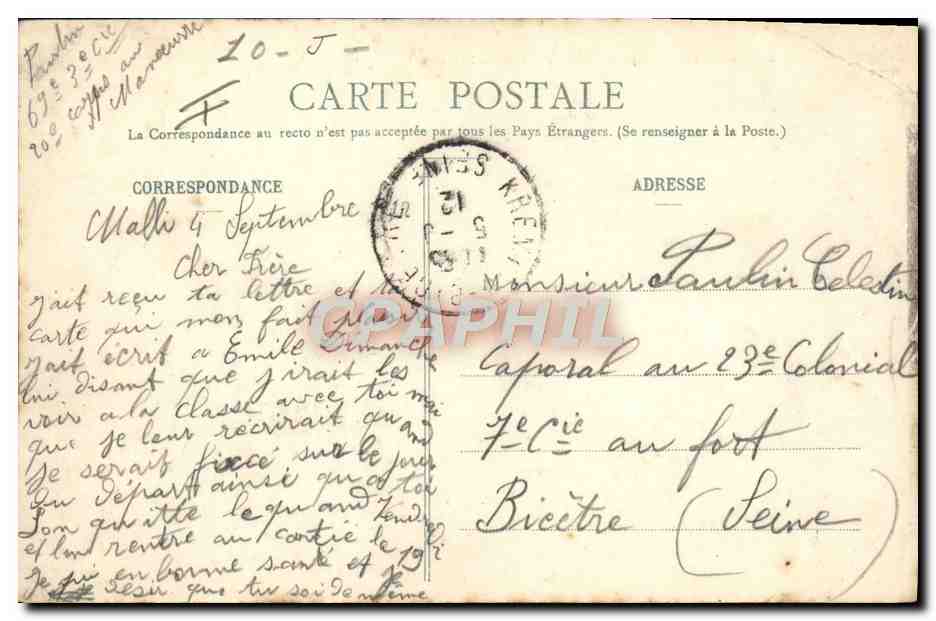 Paulin
69e 3e Cie
20e corps au
Manœuvre
10 - J -
CARTE POSTALE
La Correspondance au recto n'est pas acceptée par tous les Pays Étrangers. (Se renseigner à la Poste.)
CORRESPONDANCE
Mailli 4 Septembre
Cher Frère
Jait reçu ta lettre et ta
carte qui mon fait plaisir
Jait écrit a Emile Dimanche
lui disant que j'irait les
voir a la classe avec toi mai
que je leur récrirait quand
je serait fixcé sur le jour
du départ ainsi qu'a toi
l'on quitte le quand Vendredi
et l'on rentre au le 19
Je en bonne santé et
desir que tu soi de même
KREM
12
ADRESSE
Monsieur Paulin Celestin
Caporal au 23e Colonial
7e Cie au fort
Bicêtre (Seine)
CPAPHIL